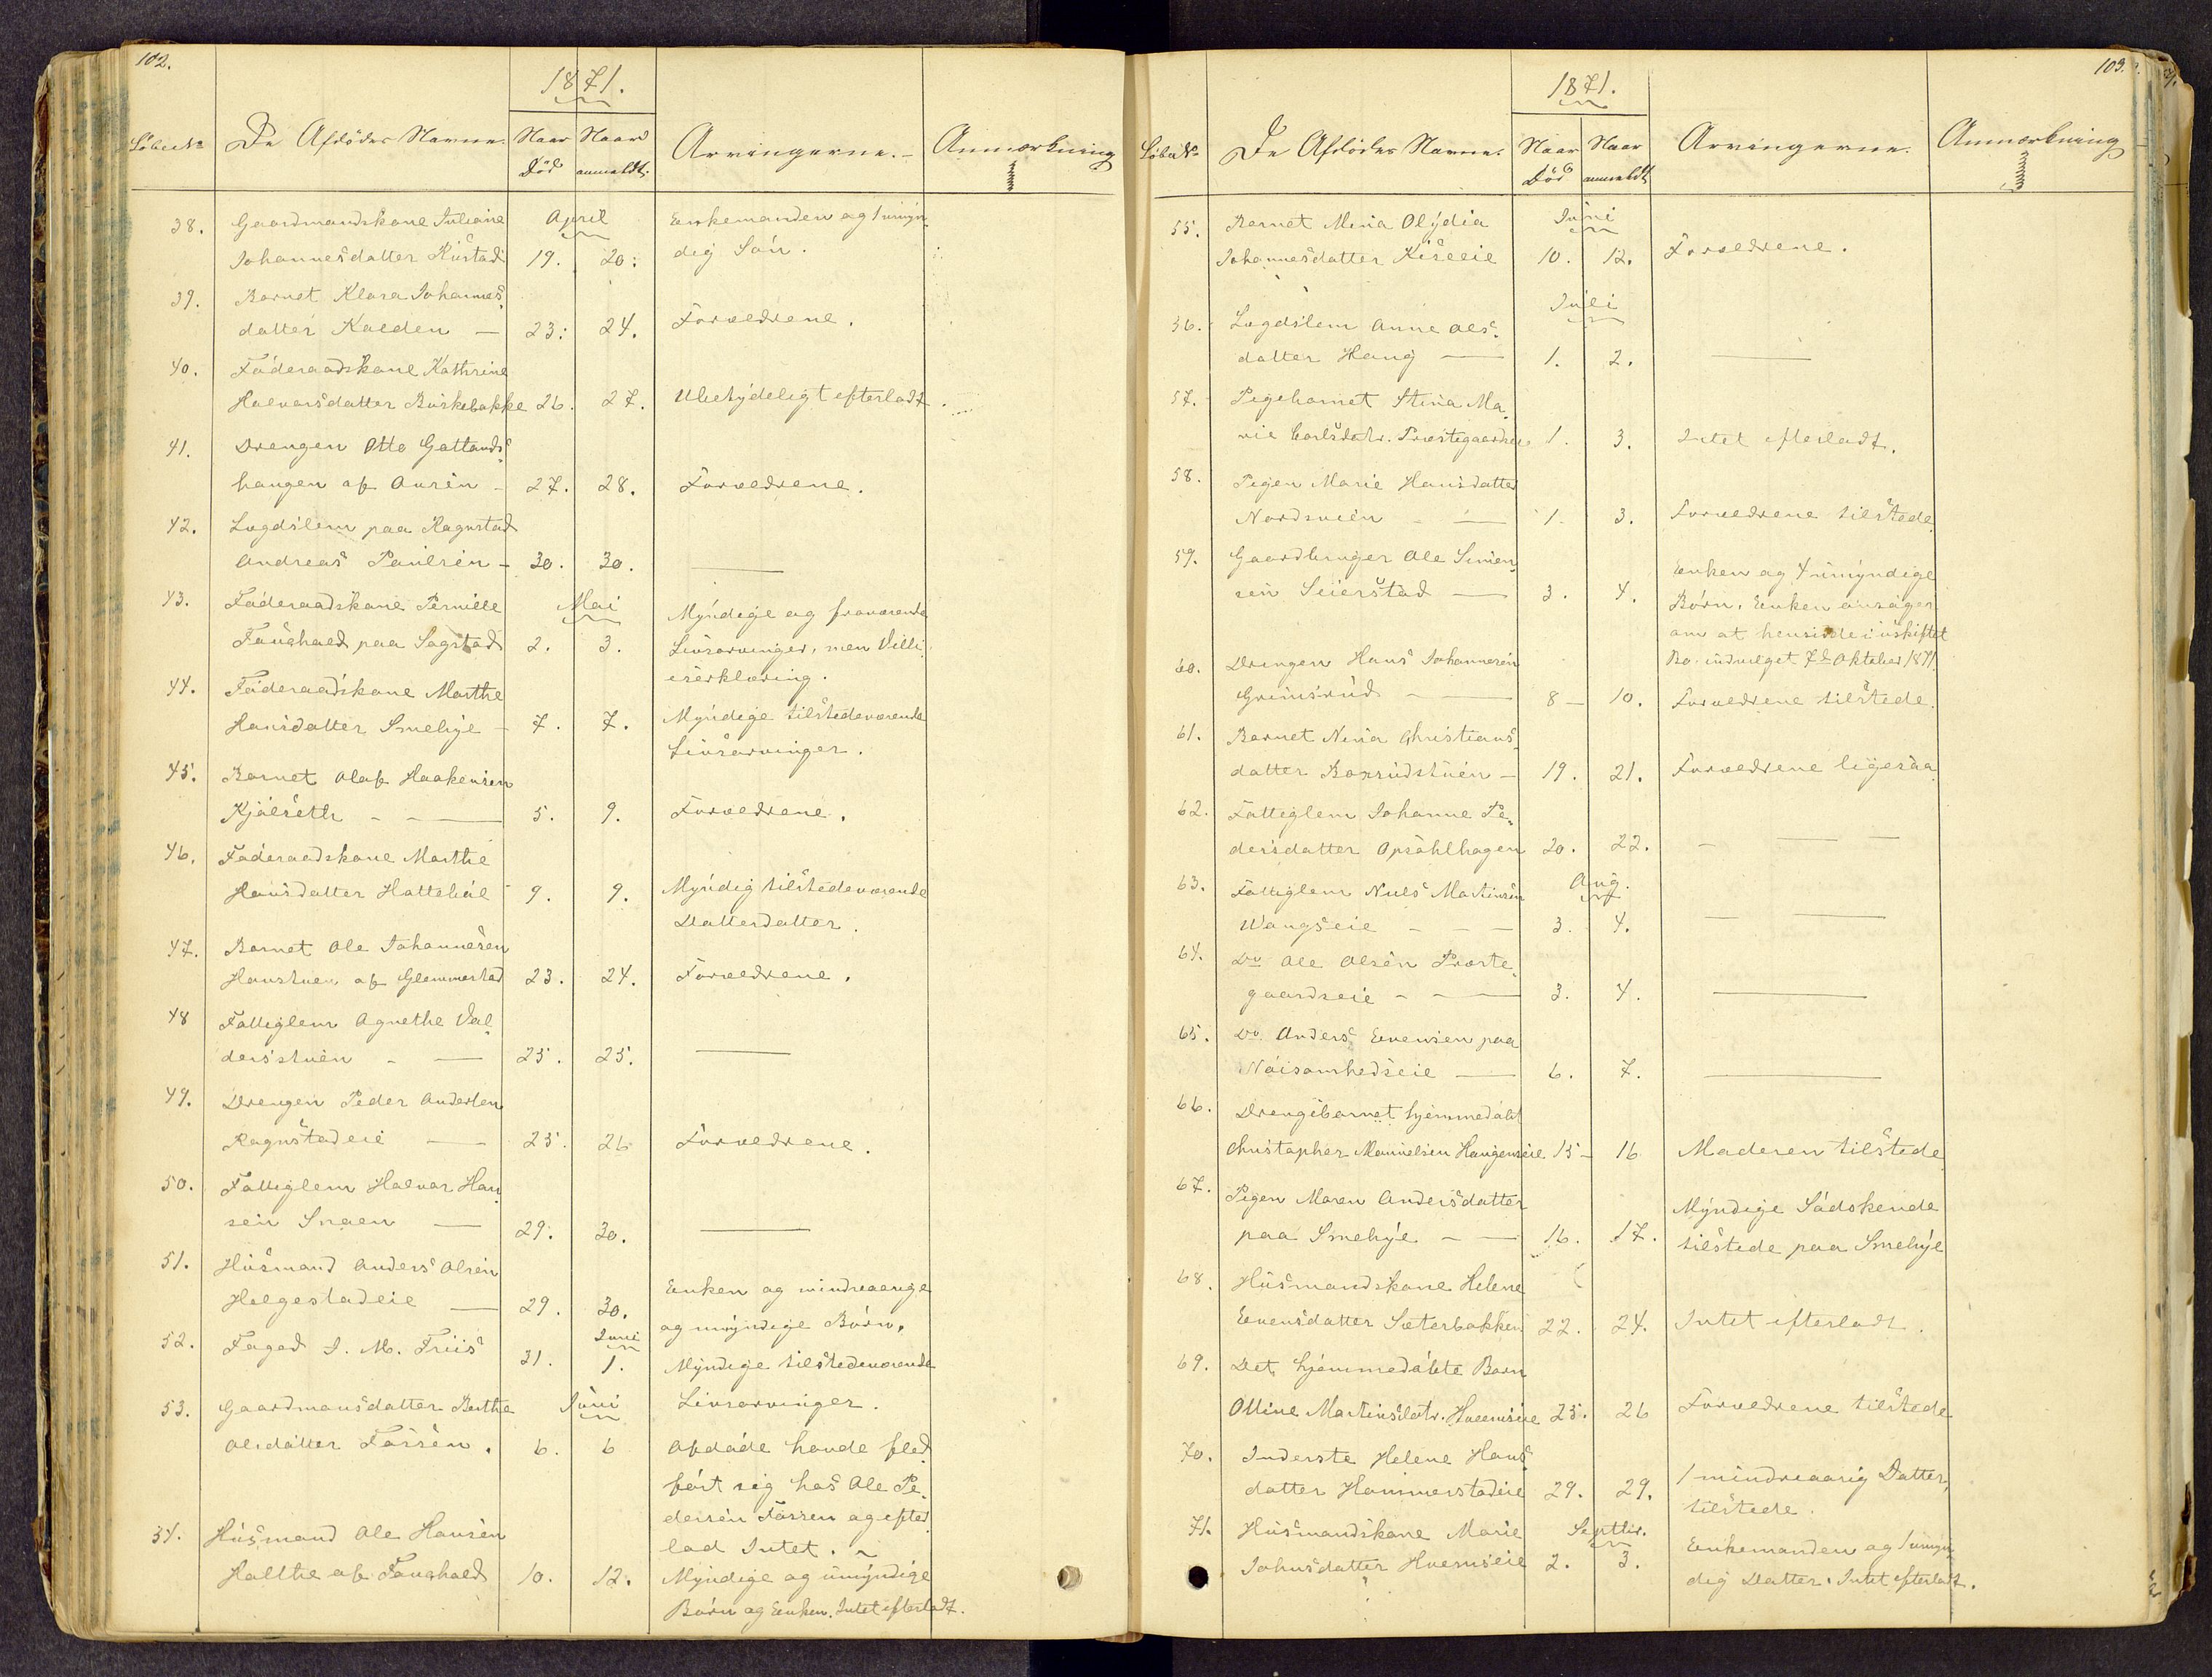 102.
1871.
Löbe No De Afdödes Navne. Naar Död Naar anmeldt. Arvingerne. Anmærkning
38. Gaardmandskone Juliane April Enkemanden og 1 umyn-
Johannesdatter Rustad 19. 20. dig Sön.
39. Barnet Klara Johannes-
datter Kalden — 23. 24. Forældrene.
40. Föderaadskone Kathrine
Halvorsdatter Birkebakke 26. 27. Ubetydeligt efterladt.
41. Drengen Otto Gottlands-
haugen af Aurén - 27. 28. Forældrene.
42. Lægdslem paa Ragnstad
Andreas Paulsen - 30. 30. —
43. Föderaadskone Pernille Mai Myndige og fraværende
Fauchald paa Sogstad 2. 3. Livsarvinger, men Villi-
44. Föderaadskone Marthe eserklæring.
Hansdatter Smebye - 7. 7. Myndige tilstedeværende
Livsarvinger.
45. Barnet Olaf Haakensen
Kjölseth - - — 5. 9. Forældrene.
46. Föderaadskone Marthe
Hansdatter Hatteböl - 9. 9. Myndig tilstedeværende
Datterdatter.
47. Barnet Ole Johannesen
Haustuen af Glemmestad 23. 24. Forældrene.
48 Fattiglem Agnethe Val-
dersstuen - — 25. 25. —
49. Drengen Peder Andersen
Ragnstadeie — 25. 26 Forældrene.
50. Fattiglem Halvor Han-
sen Snaen — 29. 30. —
51. Husmand Anders Olsen
Helgestadeie — 29. 30. Enken og mindreaarige
Juni og umyndige Börn.
52. Foged J. M. Friis 31. 1. Myndige tilstedeværende
53. Gaardmansdatter Berthe Juni Livsarvinger.
Olsdatter Fossen. 6. 6 Afdöde havde fled-
fört sig hos Ole Pe-
dersen Fossen og efter-
54. Husmand Ole Hansen lod Intet.
Holthe af Fauchald 10. 12. Myndige og umyndige
Börn og Enken. Intet efterladt.
103.
1871.
Löbe No De Afdödes Navne. Naar Död Naar anmeldt Arvingerne. Anmærkning
55. Barnet Mina Olydia Juni
Johannesdatter Kiseeie 10. 12. Forældrene.
Juli
56. Lægdslem Anne Ols-
datter Haug — 1. 2. —
57. Pigebarnet Stina Ma-
rie Carlsdatr. Præstegaardseie 1. 3. Intet efterladt.
58. Pigen Marie Hansdatter
Nordsveen - — 1. 3. Forældrene tilstede.
59. Gaardbruger Ole Simen-
sen Seierstad — 3. 4. Enken og 4 umyndige
Börn. Enken ansöger
om at hensidde i uskiftet
60. Drengen Hans Johannesen Bo. indvilget 7de Oktober 1871.
Grimsrud - — 8 - 10. Forældrene tilstede.
61. Barnet Nina Christians-
datter Borrudstuen - 19. 21. Forældrene ligesaa
62. Fattiglem Johanne Pe-
dersdatter Opsahlhagen 20. 22. - — -
63. Fattiglem Nils Martinsen Aug.
Wangseie - - — 3. 4. - —
64. Do Ole Olsen Præste-
gaardseie - - — 3. 4. —
65. Do Anders Evensen paa
Nöisomhedseie — 6. 7. —
66. Drengebarnet hjemmedöbt
Christopher Manuelsen Haugenseie 15 - 16 Moderen tilstede
67. Pigen Maren Andersdatter Myndige Södskende
paa Smebye - — 16. 17. tilstede paa Smebye
68. Husmandskone Helene
Evensdatter Sæterbakken 22. 24. Intet efterladt.
69. Det hjemmedöbte Barn
Olline Martinsdatr. Hveemseie 25. 26 Forældrene tilstede
70. Inderste Helene Hans-
datter Hammerstadeie 29. 29. 1 mindreaarig Datter,
tilstede.
71. Husmandskone Marie Septbr. Enkemanden og 1 umyn-
Johnsdatter Hvemseie 2. 3. dig Datter. Intet efterladt.